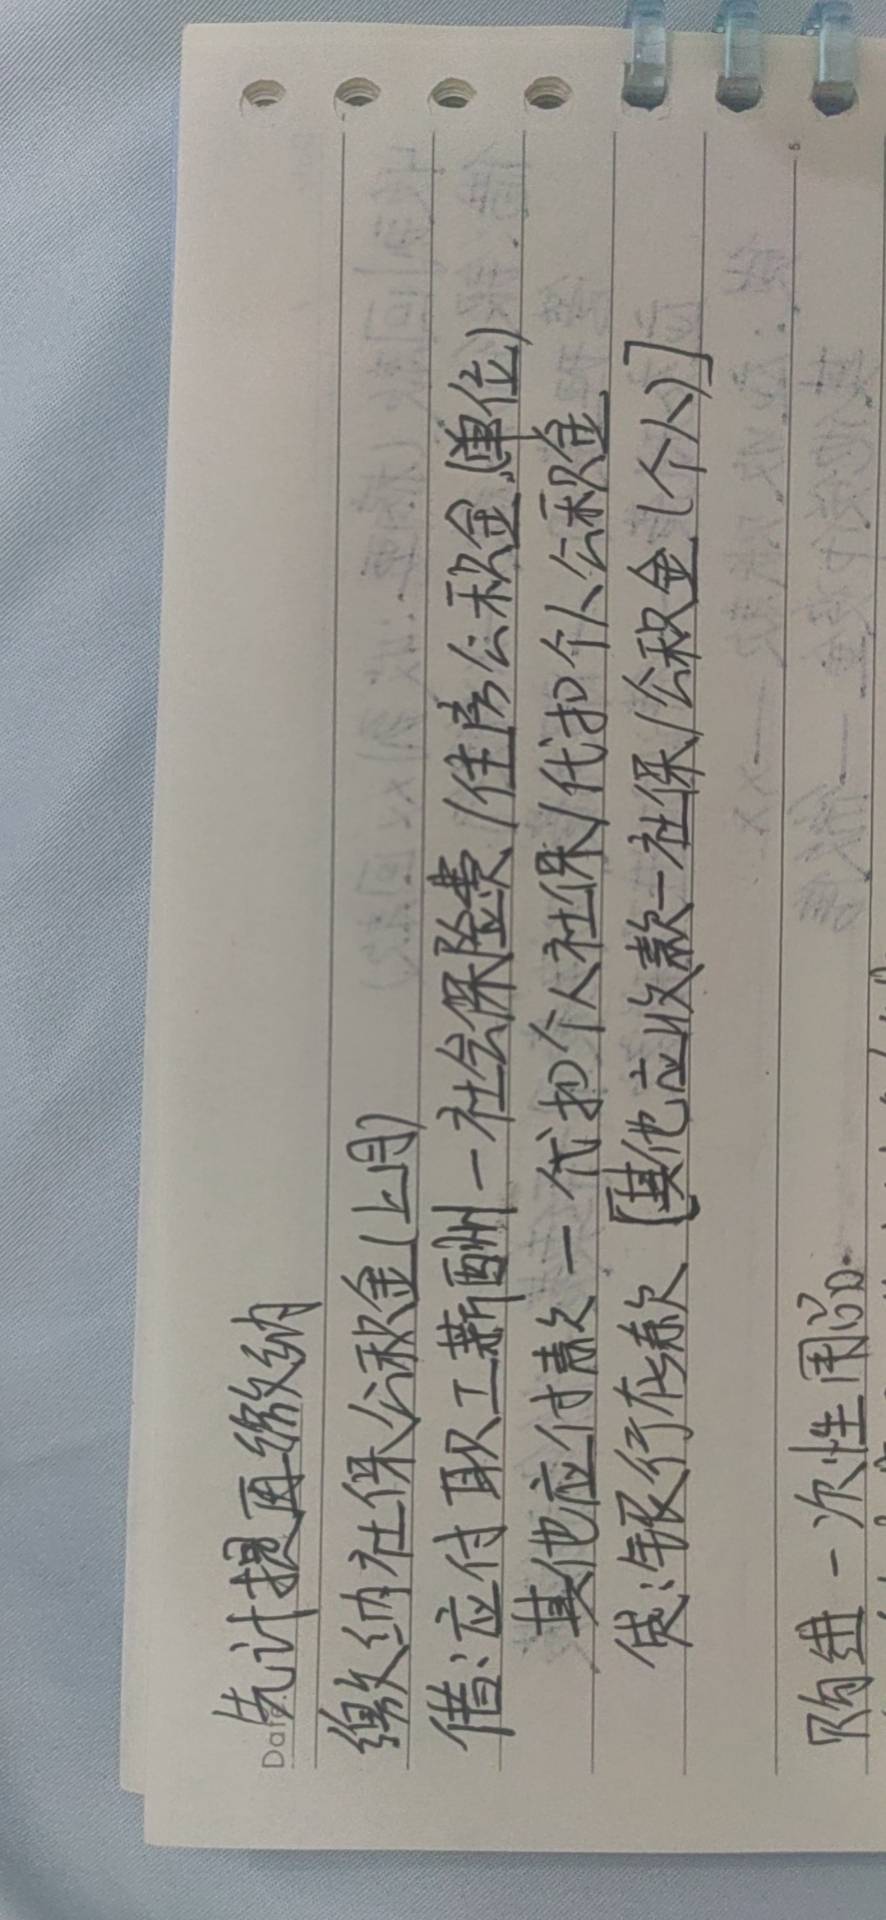 Date.
先计提再缴纳
缴纳社保公积金(上月)
借:应付职工薪酬一社会保险费/住房公积金(单位)
其他应付款一代扣个人社保/代扣个人公积金
贷:银行存款[其他应收款一社保/公积金(个人)]
购进一次性用品.